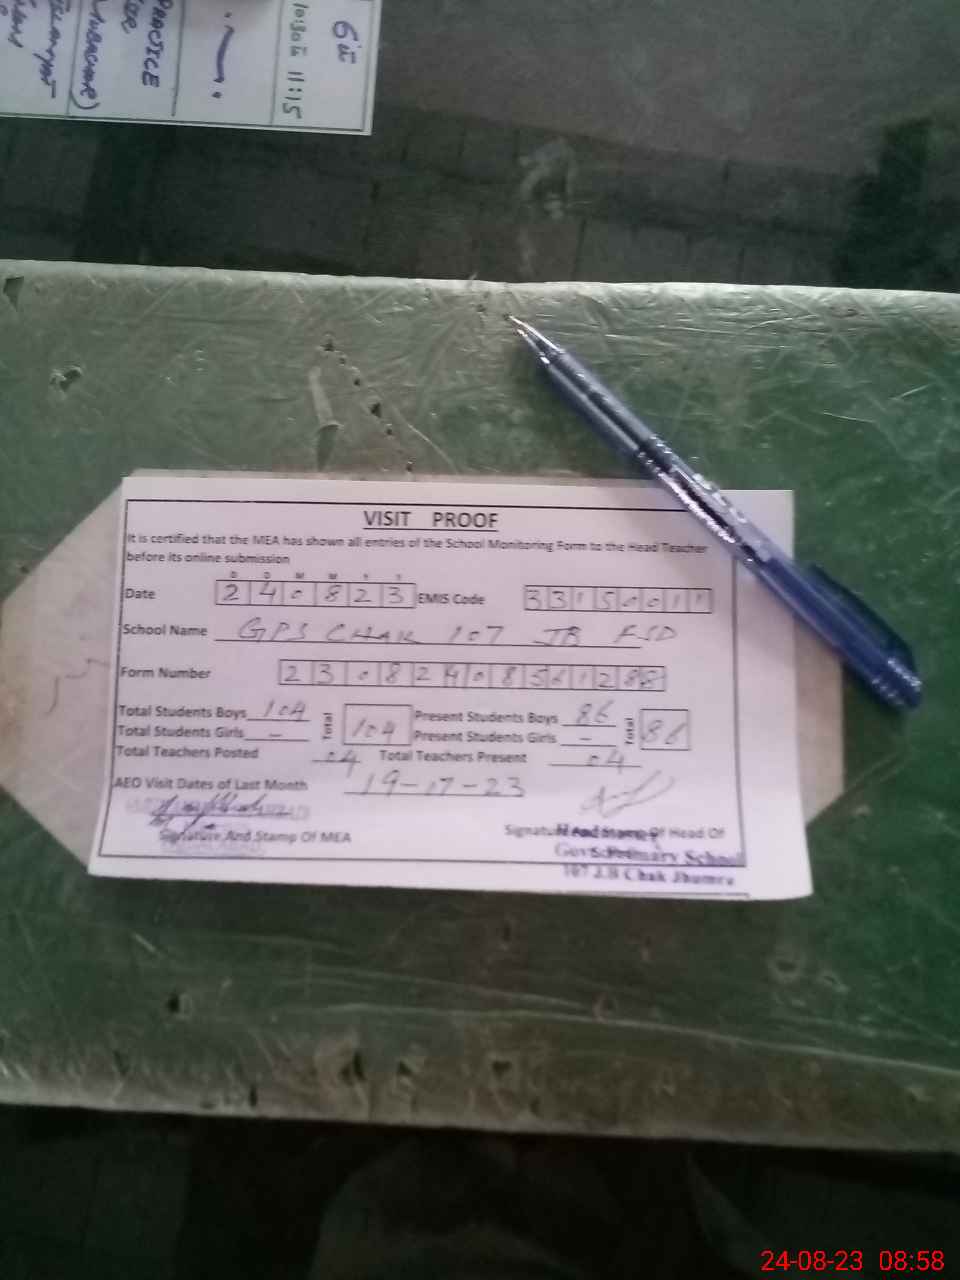 6ü
11:15
PRACTICE
VISIT PROOF
It is certified that the MEA has shown all entries of the School Monitoring Form to the Head Teacher
before its online submission
D D M M Y Y
Date 2 4 0 8 2 3 EMIS Code 3 3 1 5 0 0 1 1
School Name GPS CHAK 107 JB FSD
Form Number 2 3 0 8 2 4 0 8 5 6 1 2 8 8
Total Students Boys 104 Total 104 Present Students Boys 86 Total 86
Total Students Girls - Present Students Girls -
Total Teachers Posted 04 Total Teachers Present 04
AEO Visit Dates of Last Month 19-17-23
Signature And Stamp Of MEA Signature And Stamp Of Head Of
Govt. Primary School
107 J.B Chak Jhumra
24-08-23 08:58